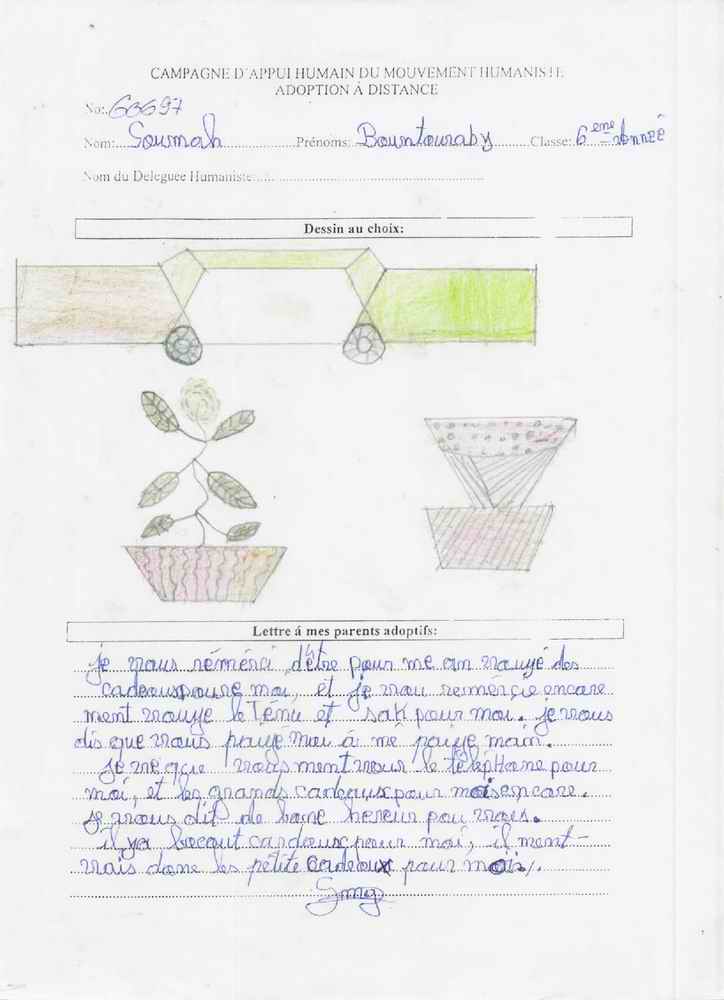 CAMPAGNE D'APPUI HUMAIN DU MOUVEMENT HUMANISTE
ADOPTION Á DISTANCE
No: 66697
Nom: Soumah Prénoms: Bountouraby Classe: 6 eme Année
Nom du Deleguee Humaniste
Dessin au choix:
Lettre á mes parents adoptifs:
je vous rémérci d'être pour me an vauyé des
cadeaux pour moi, et je vou remércie encare
ment vauye le Ténu et sak pour moi. je vous
dis que vous payé moi á mé paye main.
je ve que vous ment vour le télépHone pour
moi, et les grands cardeaux pour mois encare.
je vous dit de bone hereur pou vous.
il ya becout cardeaux pour moi, il ment-
vais done les pétite cardeaux pour mois,.